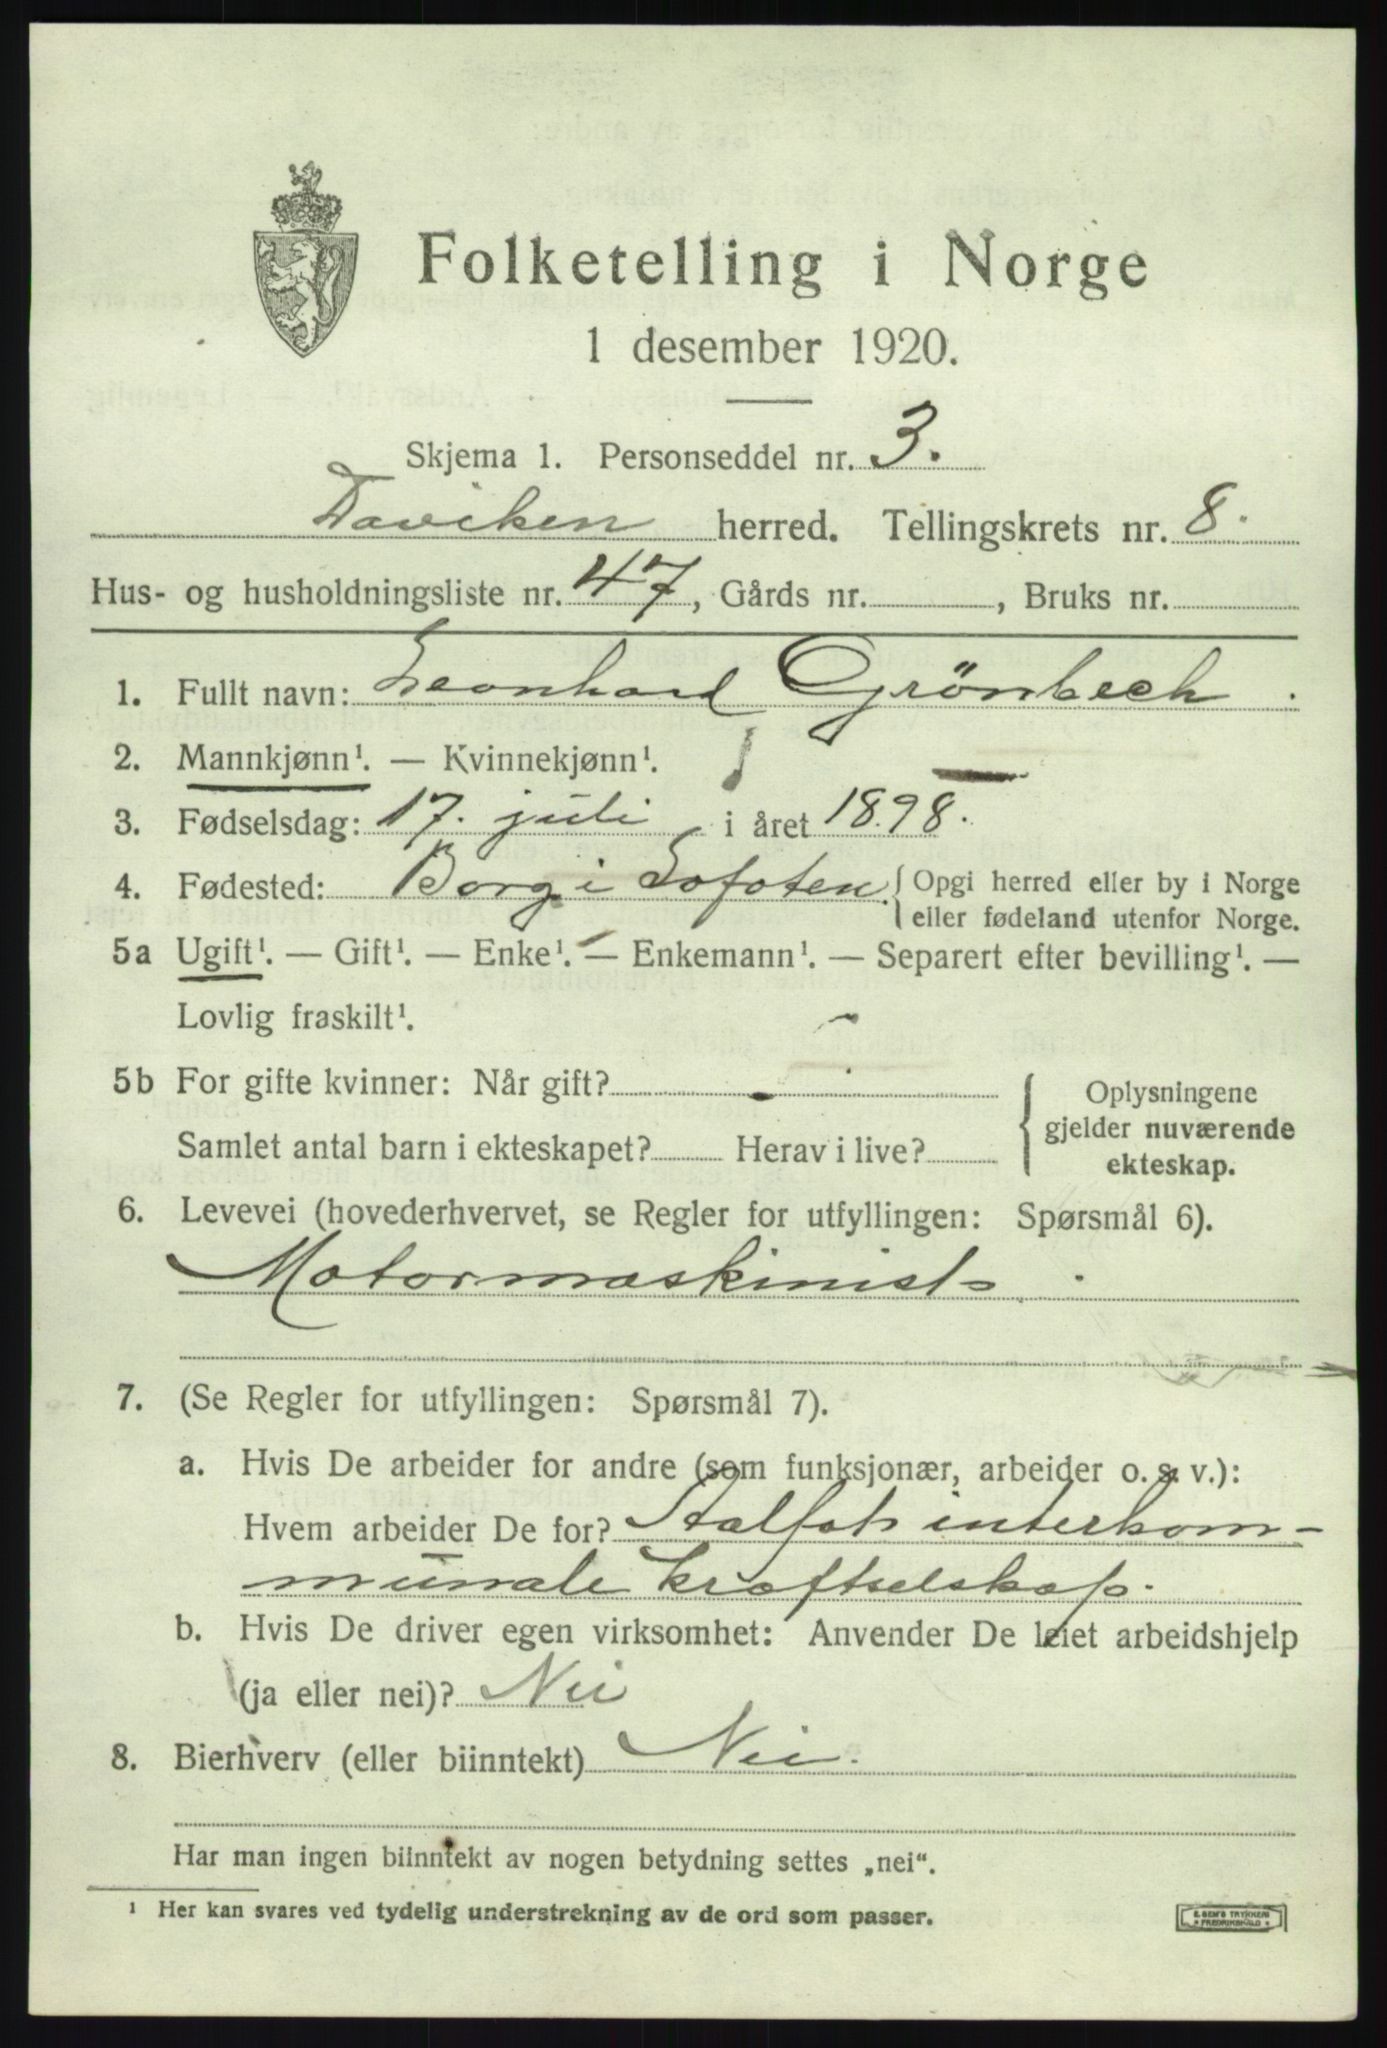 Folketelling i Norge
1 desember 1920.
Skjema 1. Personseddel nr. 3.
Daviken herred. Tellingskrets nr. 8.
Hus- og husholdningsliste nr. 47, Gårds nr. , Bruks nr.
1. Fullt navn: Leonhard Grönbech.
2. Mannkjønn¹. — Kvinnekjønn¹.
3. Fødselsdag: 17. juli i året 1898.
4. Fødested: Borg i Lofoten. { Opgi herred eller by i Norge
eller fødeland utenfor Norge.
5a Ugift¹. — Gift¹. — Enke¹. — Enkemann¹. — Separert efter bevilling¹. —
Lovlig fraskilt¹.
5b For gifte kvinner: Når gift?
Samlet antal barn i ekteskapet? Herav i live?
{ Oplysningene
gjelder nuværende
ekteskap.
6. Levevei (hovederhvervet, se Regler for utfyllingen: Spørsmål 6).
Motormaskinist.
7. (Se Regler for utfyllingen: Spørsmål 7).
a. Hvis De arbeider for andre (som funksjonær, arbeider o. s. v.):
Hvem arbeider De for? Aalfot interkom-
munale kraftselskap.
b. Hvis De driver egen virksomhet: Anvender De leiet arbeidshjelp
(ja eller nei)? Nei
8. Bierhverv (eller biinntekt) Nei.
Har man ingen biinntekt av nogen betydning settes „nei“.
¹ Her kan svares ved tydelig understrekning av de ord som passer.
E. SEM'S TRYKKERI
FREDRIKSHALD